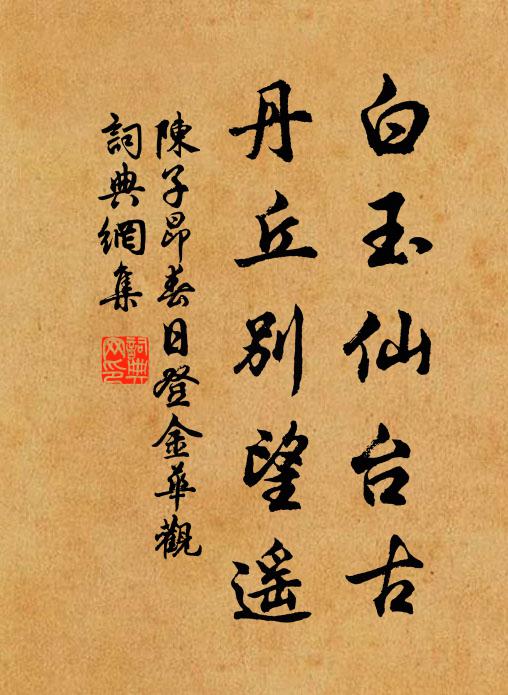 白玉仙台古
丹丘別望遥
陳子昂春日登金華觀
詞典網集
詞典网印